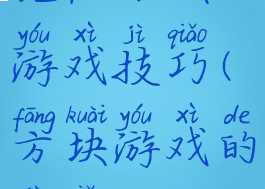 yóu xì jì qiǎo
游戏技巧(
fāng kuài yóu xì de
方块游戏的